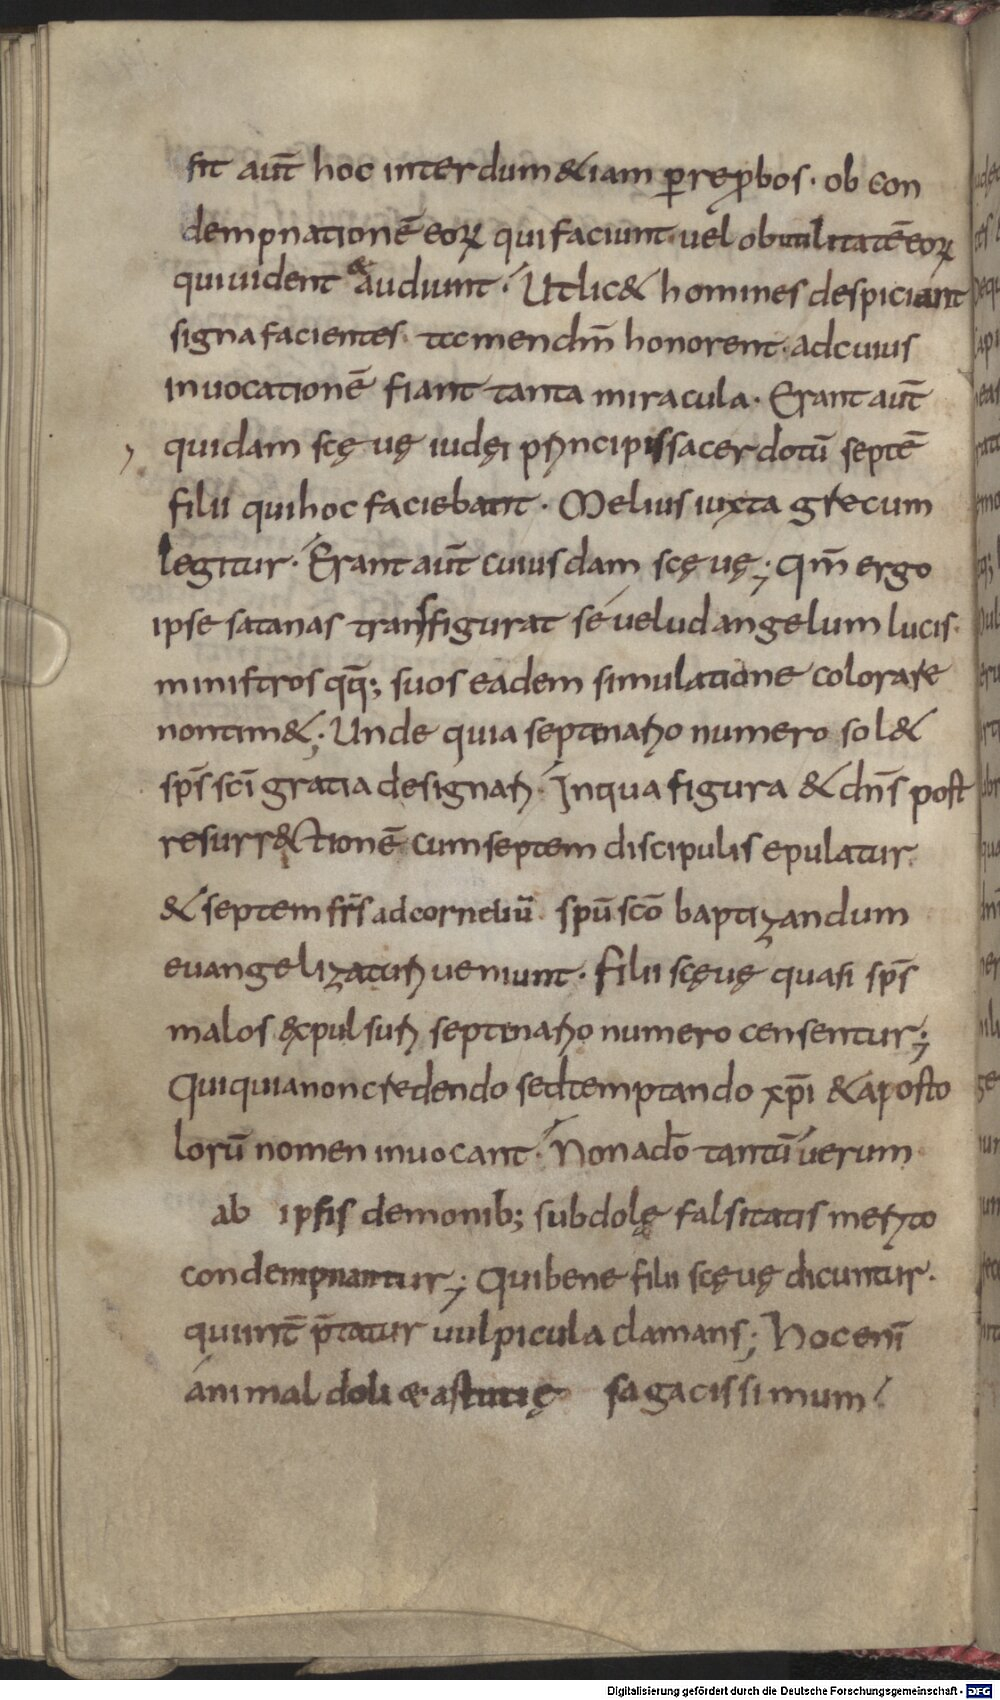 fit aut̄ hoc interdum &iam ꝑ reꝓbos · ob con
dempnationē eoꝝ qui faciunt · uel ob utilitatē eoꝝ
qui uident & audiunt · Ut lic& homines despiciant
signa facientes · tam̄en dm̄ honorent · ad cuius
inuocationē fiant tanta miracula · Erant aut̄
quidam scęuę iudęi principis sacerdotū septē
filii qui hoc faciebant · Melius iuxta grecum
legitur · Erant aut̄ cuiusdam scęuę ; qm̄ ergo
ipse satanas transfigurat se uelud angelum lucis ·
ministros qq̄; suos eadem simulatione colorare
non tim& ; Unde quia septenario numero sol&
sps̄ sci̅ gratia designari · In qua figura & dn̄s post
resurr&ctionē cum septem discipulis epulatur ·
& septem frs̄ ad corneliū spū scō baptizandum
euangelizaturi ueniunt · filii scęuę quasi sps̄
malos expulsuri septenario numero censentur ;
Qui quia non credendo sed temptando xp̄i & aposto
lorū nomen inuocant · Non a dō tantū uerum
ab ipsis demonib; subdolę falsitatis merito
condempnantur ; Qui bene filii scęuę dicuntur ·
qui int̄ p̄tatur uulpicula clamans ; Hoc enī
animal doli & astutię sagacissimum
Digitalisierung gefördert durch die Deutsche Forschungsgemeinschaft - DFG